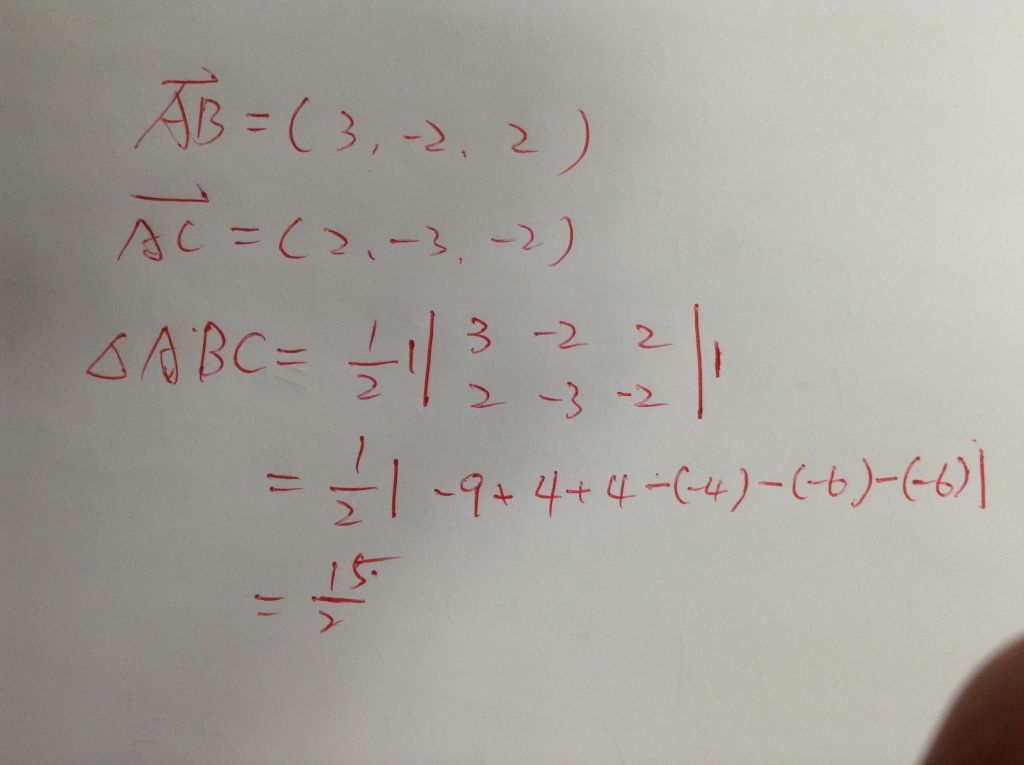 AB = ( 3, -2, 2 )
AC = ( 2, -3, -2 )
△ABC = 1/2 | | 3 -2 2 | |
2 -3 -2
= 1/2 | -9 + 4 + 4 - (-4) - (-6) - (-6) |
= 15/2